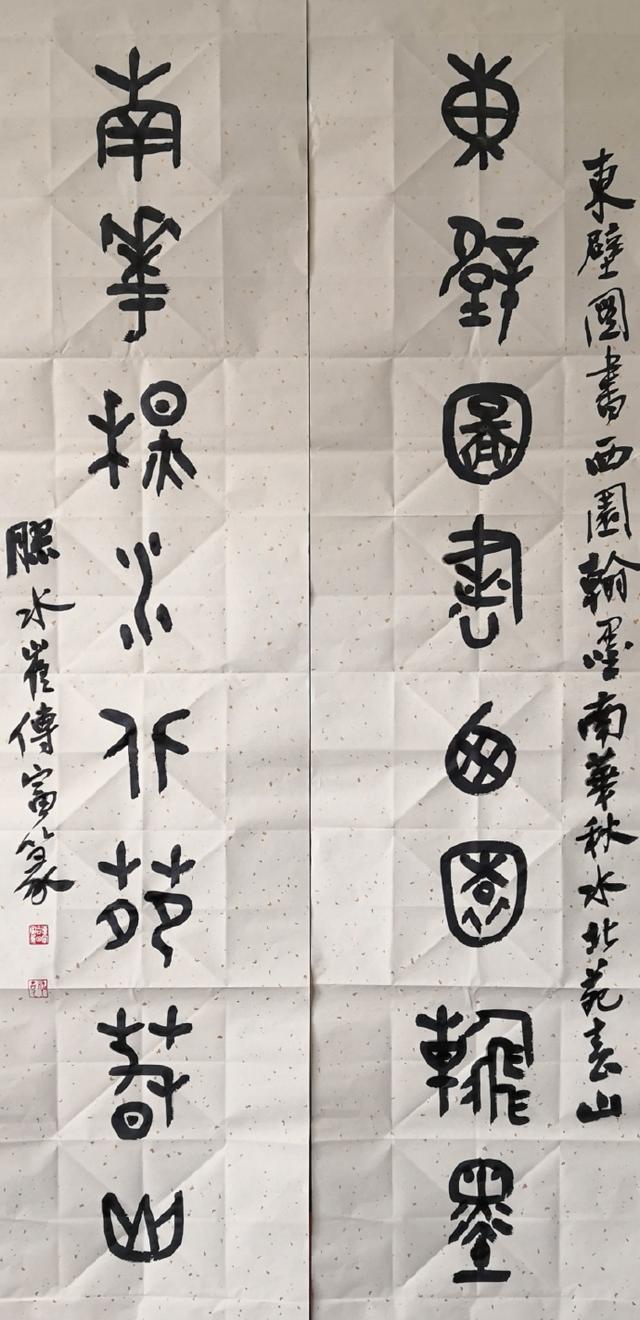 東壁圖書西園翰墨南華秋水北苑春山
東壁圖書西園翰墨
南華秋水北苑春山
膠水崔傳富篆